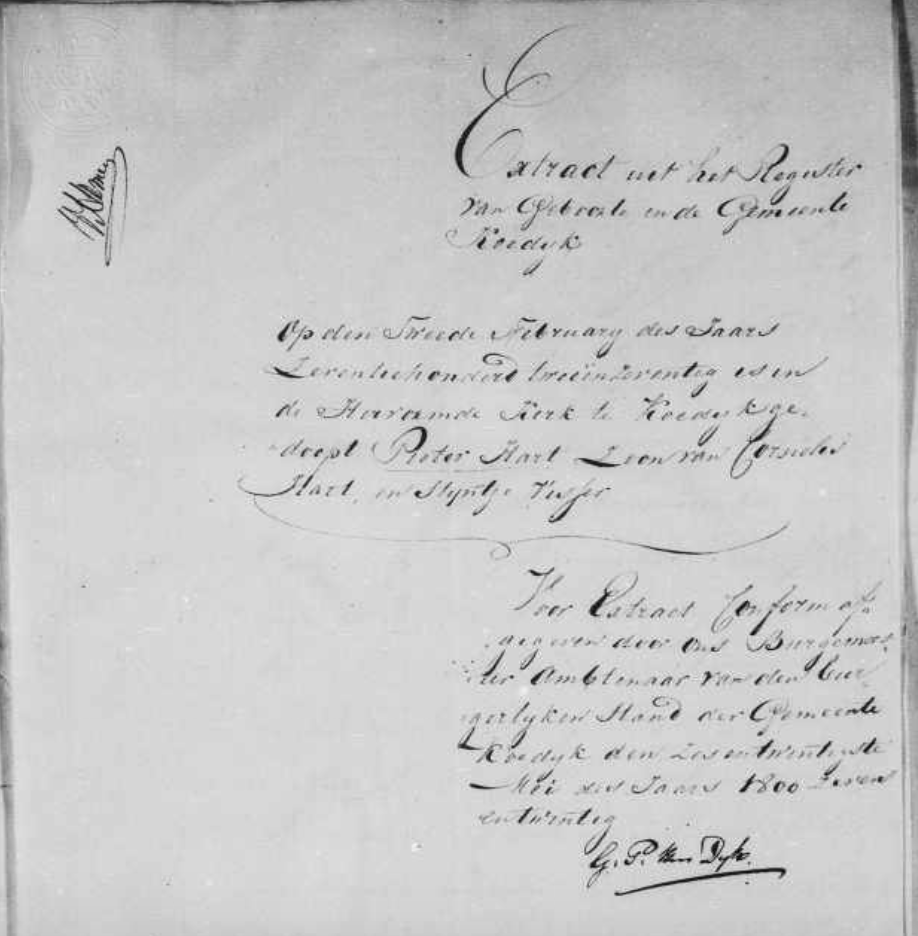 Extract uit het Register
van Geboorte in de Gemeente
Koedyk
Op den Tweede February des Jaars
Zeventiehonderd tweeënzeventig is in
de Hervormde Kerk te Koedyk ge-
doopt Pieter Hart Zoon van Cornelis
Hart, en Styntje Visser
Voor Extract Conform af-
gegeven door ons Burgemees-
ter Ambtenaar van den Bur-
gerlyken Stand der Gemeente
Koedyk den zesentwintigste
Mei des Jaars 1800 zeven
entwintig
G. P. Van Dyk.